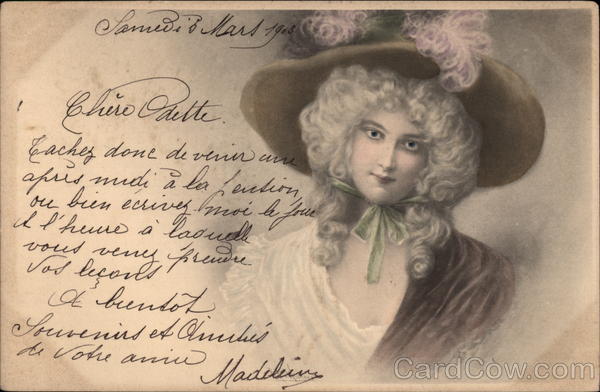 Samedi 8 Mars 1903
Chère Odette.
Tachez donc de venir une
après midi à la Pension
ou bien écrivez moi le jour
et l'heure à laquelle
vous venez prendre
vos leçons
A bientôt
Souvenirs et Amitiés
de votre amie
Madeleine
CardCow.com